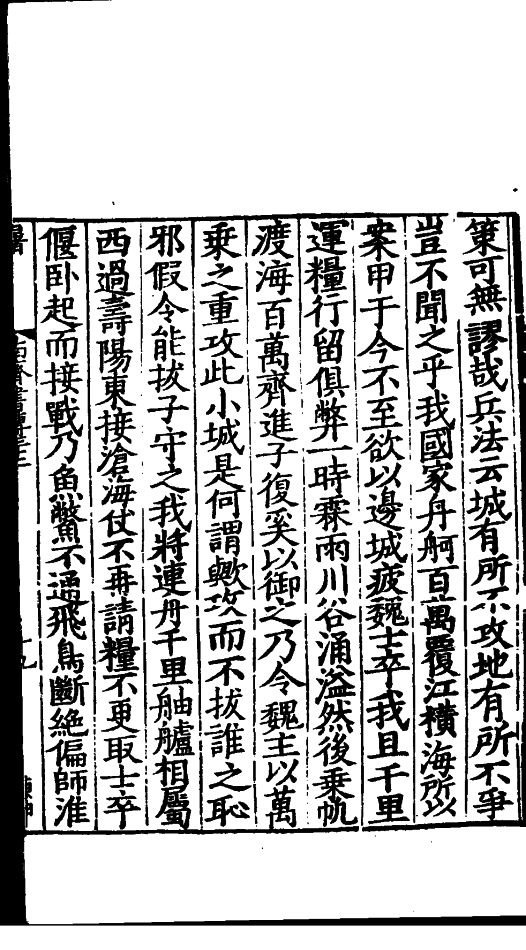 策可無謬哉兵法云城有所不攻地有所不爭
豈不聞之乎我國家丹舸百萬覆江横海所以
案甲于今不至欲以邊城疲魏士卒我且千里
運糧行留俱弊一時霖雨川谷涌溢然後乗帆
渡海百萬齊進子復奚以御之乃令魏主以萬
乗之重攻此小城是何謂歟攻而不拔誰之恥
邪假令能拔子守之我將連舟千里舳艫相屬
西過壽陽東接滄海仗不再請糧不更取士卒
偃卧起而接戰乃魚鱉不通飛鳥斷絶偏師淮